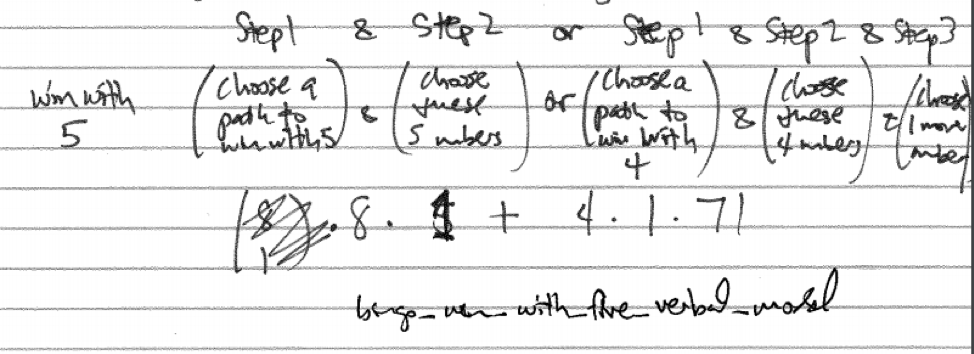 Step 1 & Step 2 or Step 1 & Step 2 & Step 3
win with 5 (choose a path to win with 5) & (choose these 5 numbers) or (choose a path to win with 4) & (choose these 4 numbers) & (choose 1 more number)
8 · 1 + 4 · 1 · 71
bingo_win_with_five_verbal_model